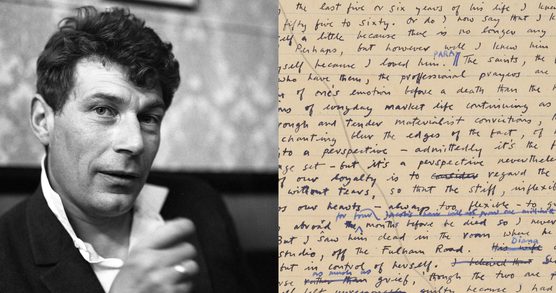 the last five or six years of his life I knew
fifty five to sixty. Or do I now say that I
self a little because there is no longer any
Perhaps, but however well I knew him
PARA
self because I loved him. The saints, the
who have them, the professional prayers are
of one's emotion before a death than the
of everyday market life continuing as
rough and tender materialist convictions,
chanting blur the edges of the fact, of
to a perspective – admittedly it's the
set – but it's a perspective nevertheless
of our loyalty is to consider regard the
without tears, so that the stiff,
our hearts always too flexible – to
for
abroad months before he died so I never
But I saw him dead in the room where he
Diana
studio, off the Fulham Road. His wife
but in control of herself. I believed that
much as
rather than grief, though the two are
left because I had